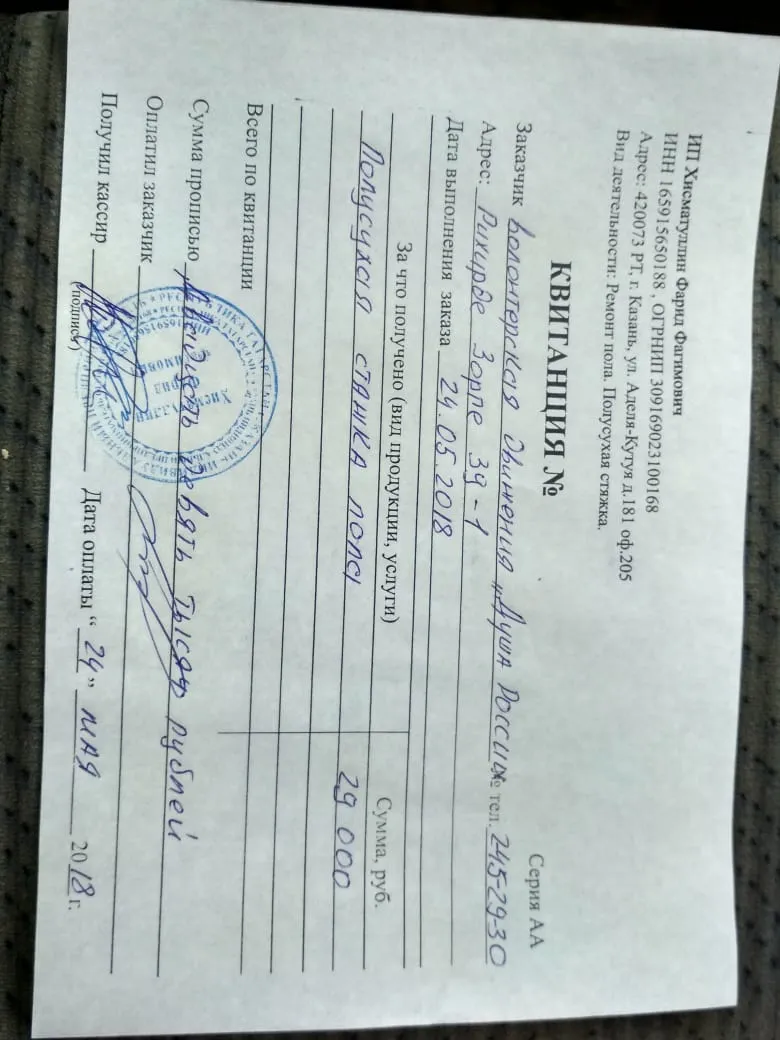 ИП Хисматуллин Фарид Фагимович
ИНН 165915650188 , ОГРНИП 309169023100168
Адрес: 420073 РТ, г. Казань, ул. Аделя-Кутуя д.181 оф.205
Вид деятельности: Ремонт пола. Полусухая стяжка.
Серия АА
КВИТАНЦИЯ №
Заказчик Волонтерская движения „Душа России" № тел. 245-29-30
Адрес: Рихарда Зорге 39-1
Дата выполнения заказа 24.05.2018
За что получено (вид продукции, услуги) Сумма, руб.
Полусухая стяжка пола 29 000
Всего по квитанции
Сумма прописью Двадцать девять тысяч рублей
Оплатил заказчик
Получил кассир Дата оплаты “ 24 ” мая 2018 г.
(подпись)